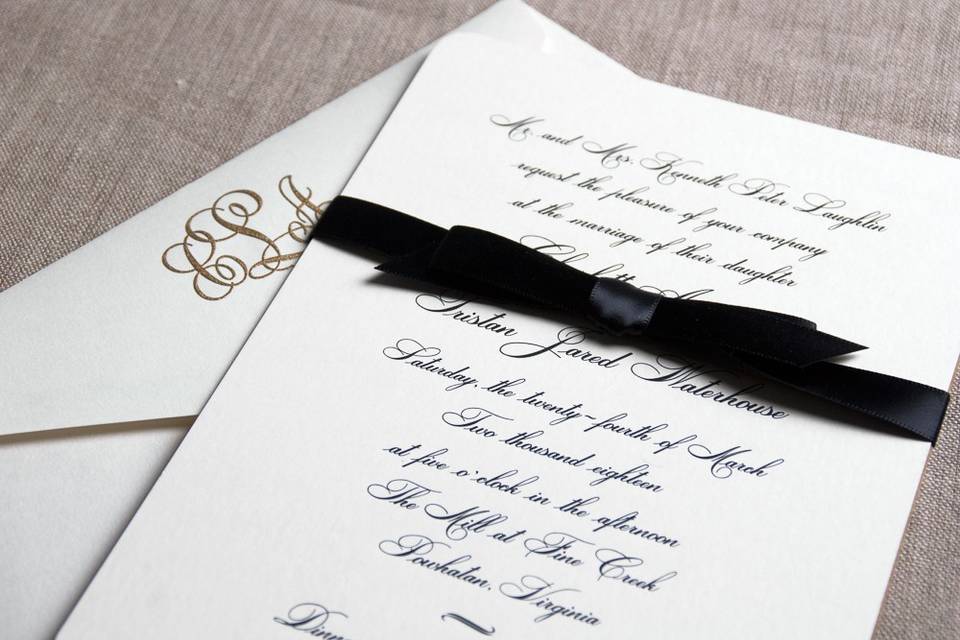 Mr. and Mrs. Kenneth Peter Laughlin
request the pleasure of your company
at the marriage of their daughter
Tristan Jared Waterhouse
Saturday, the twenty-fourth of March
Two thousand eighteen
at five o'clock in the afternoon
The Mill at Fine Creek
Powhatan, Virginia